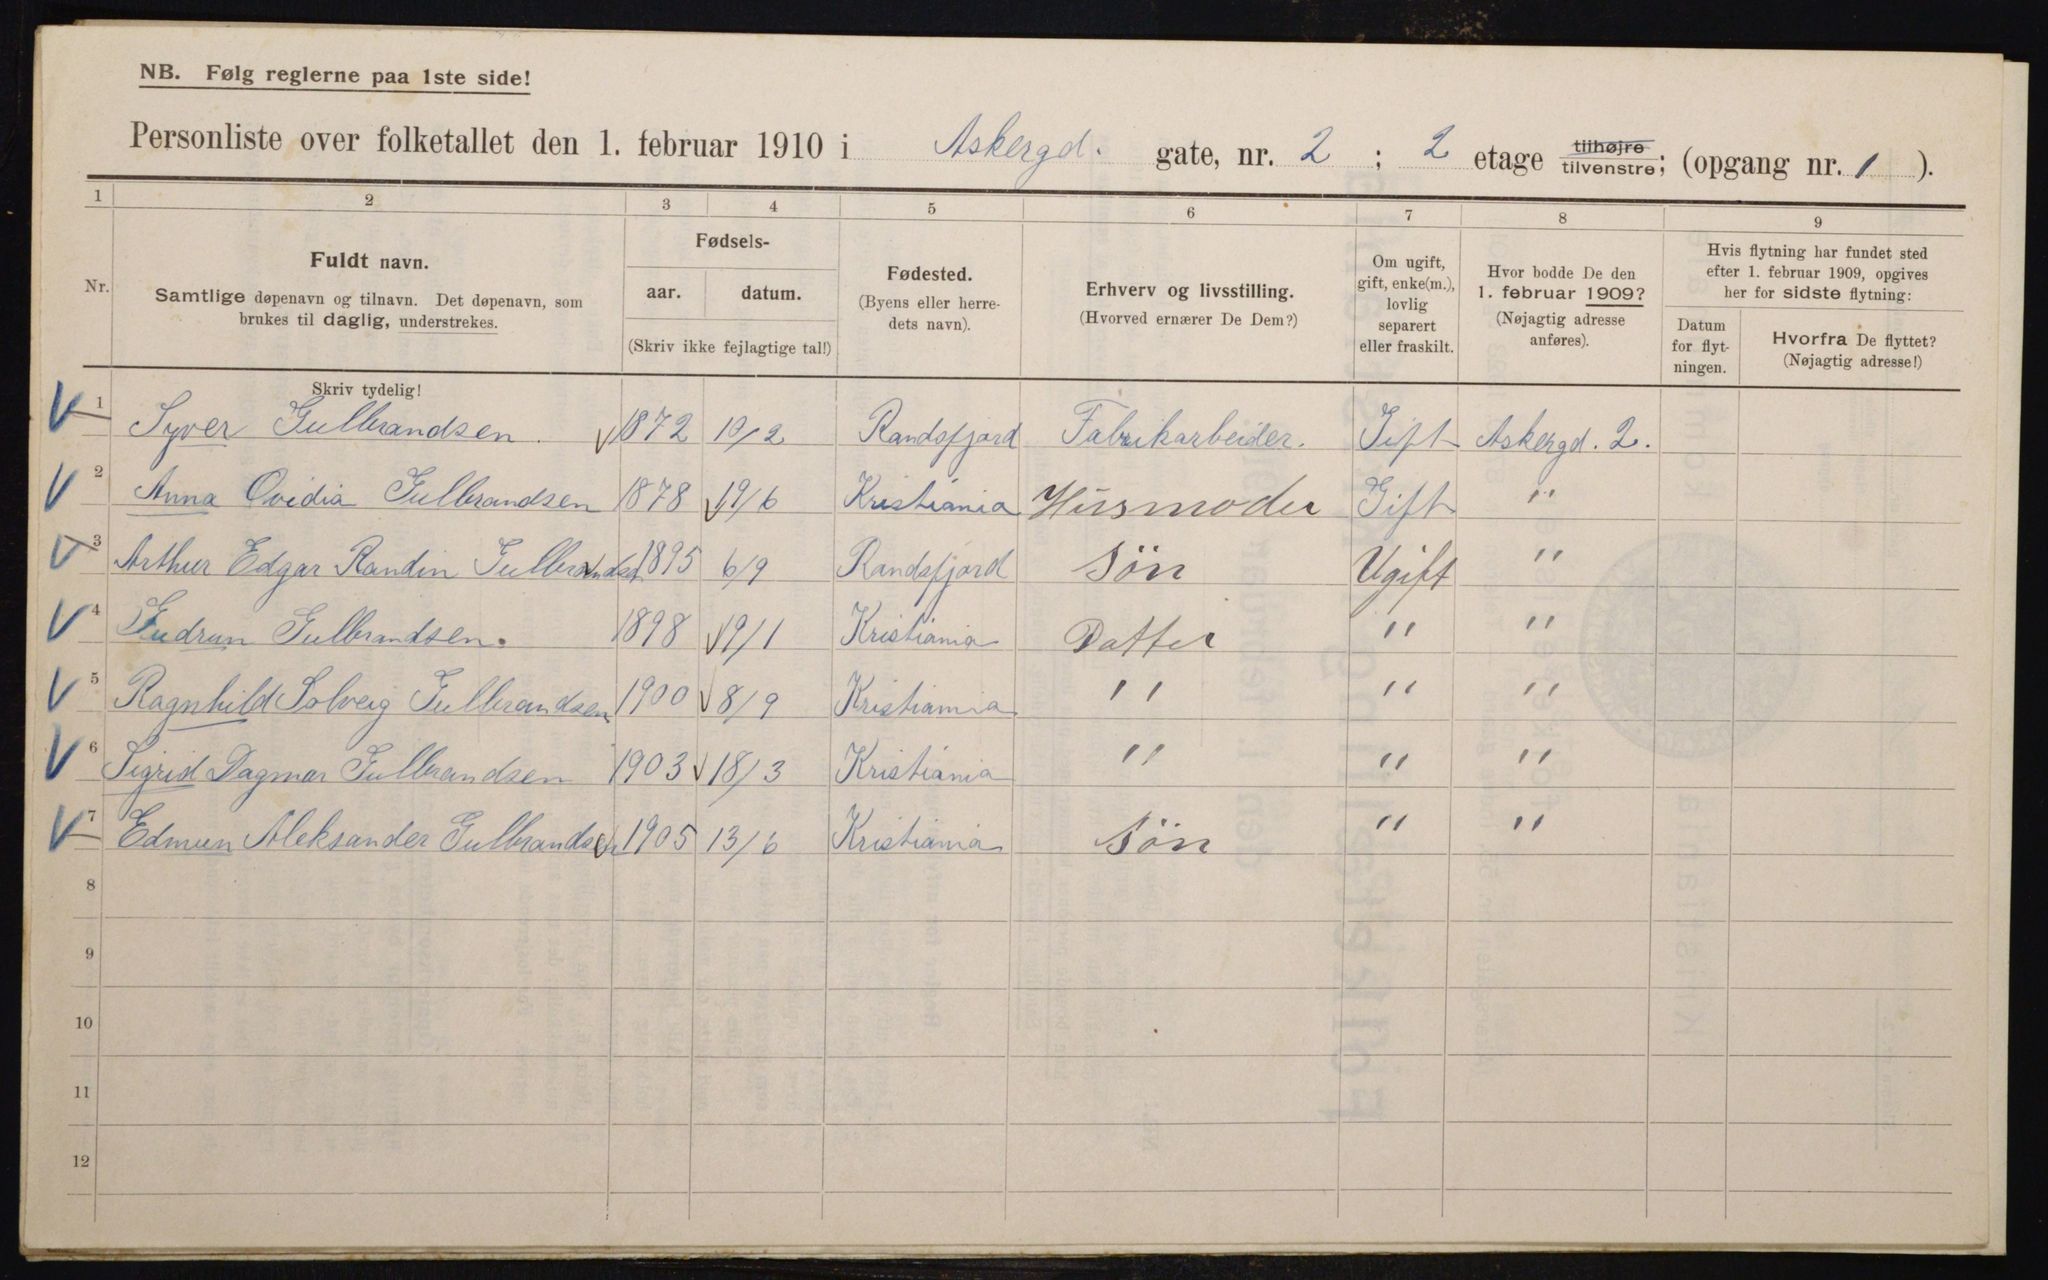 NB. Følg reglerne paa 1ste side!
Personliste over folketallet den 1. februar 1910 i Askergd. gate, nr. 2 ; 2 etage tilhøjre tilvenstre; (opgang nr. 1 ).
1 2 3 4 5 6 7 8 9
Nr.
Fuldt navn.
Samtlige døpenavn og tilnavn. Det døpenavn, som
brukes til daglig, understrekes.
Skriv tydelig!
Fødsels-
aar. datum.
(Skriv ikke fejlagtige tal!)
Fødested.
(Byens eller herre-
dets navn).
Erhverv og livsstilling.
(Hvorved ernærer De Dem?)
Om ugift,
gift, enke(m.),
lovlig
separert
eller fraskilt.
Hvor bodde De den
1. februar 1909?
(Nøjagtig adresse
anføres).
Hvis flytning har fundet sted
efter 1. februar 1909, opgives
her for sidste flytning:
Datum
for flyt-
ningen.
Hvorfra De flyttet?
(Nøjagtig adresse!)
1 Syver Gulbrandsen. 1872 10/2 Randsfjord Fabrikarbeider. Gift Askergd. 2.
2 Anna Ovidia Gulbrandsen 1878 19/6 Kristiania Husmoder Gift "
3 Arthur Edgar Randin Gulbrandsen 1895 6/9 Randsfjord Søn Ugift "
4 Gudrun Gulbrandsen. 1898 19/1 Kristiania Datter " "
5 Ragnhild Solveig Gulbrandsen 1900 8/9 Kristiania " " "
6 Sigrid Dagmar Gulbrandsen 1903 18/3 Kristiania " " "
7 Edmun Aleksander Gulbrandsen 1905 13/6 Kristiania Søn " "
8
9
10
11
12